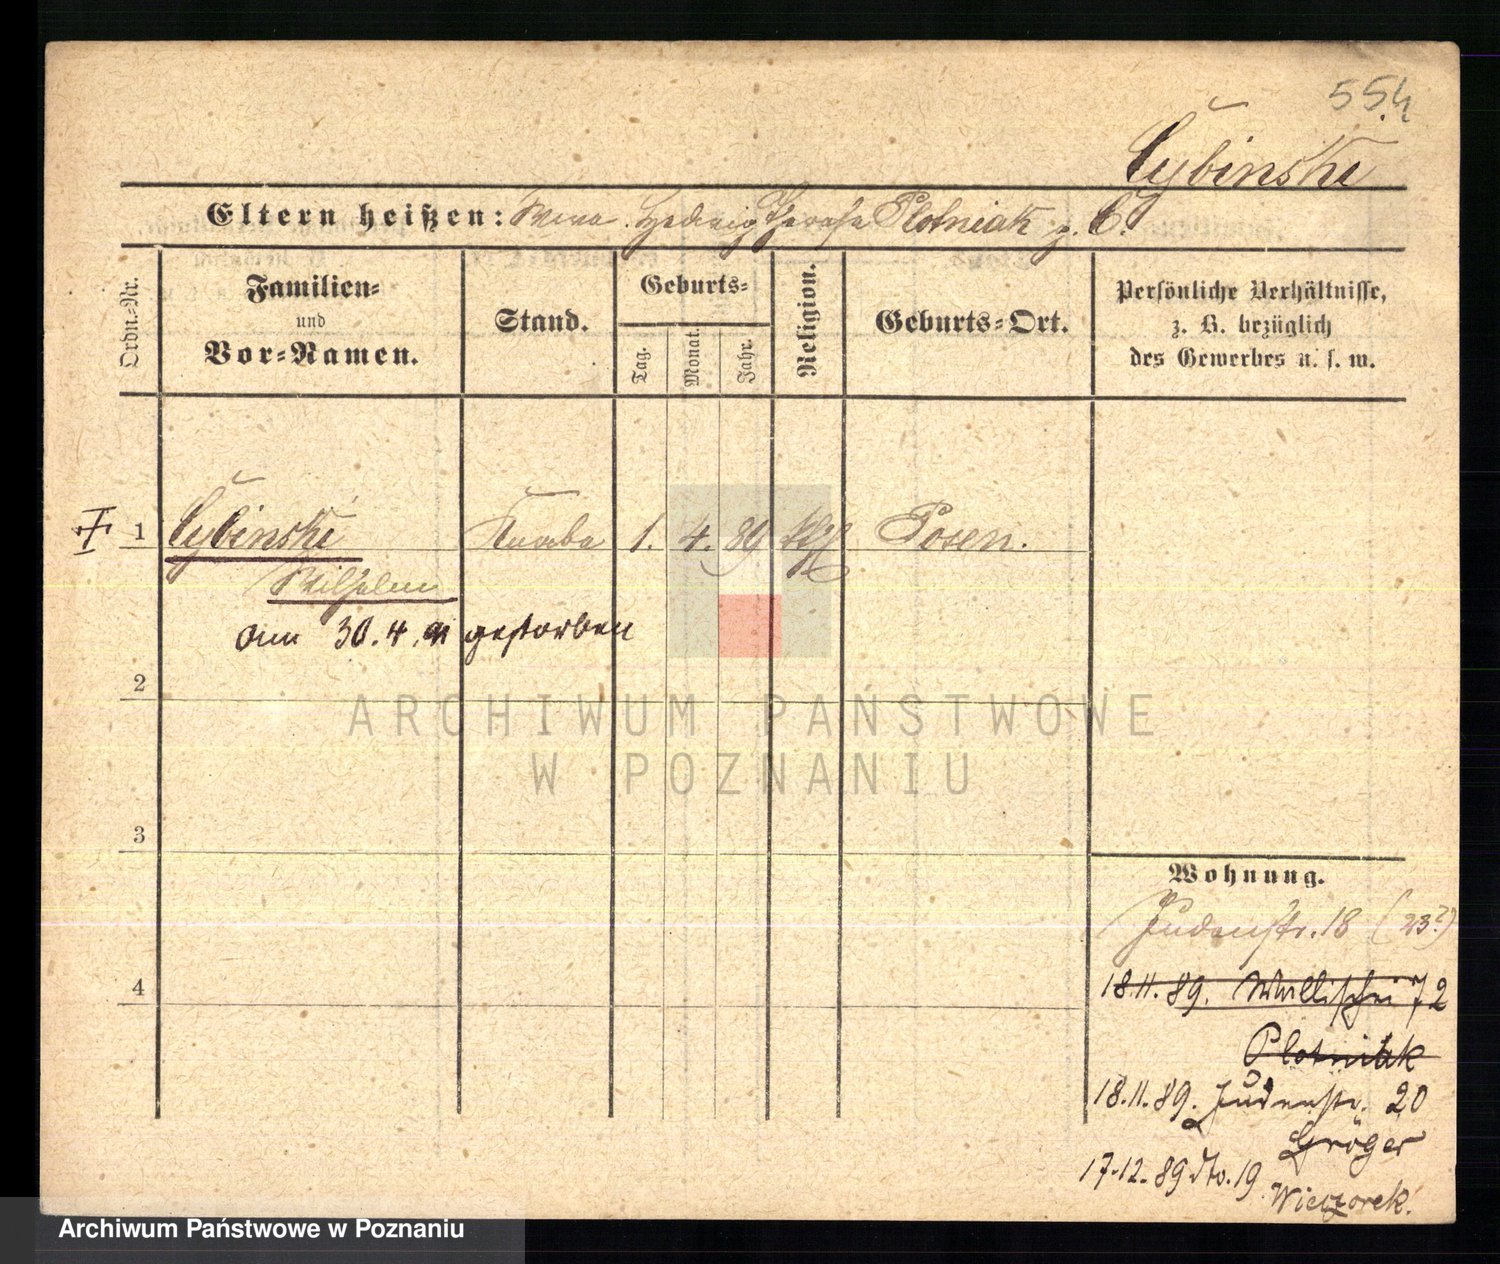 554
Cybinski
Eltern heißen: Wwe. Hedwig Therese Plotniak g. C.
Ordn.-Nr.
Familien-
und
Vor-Namen.
Stand.
Geburts-
Tag.
Monat.
Jahr.
Religion.
Geburts-Ort.
Persönliche Verhältnisse,
z. B. bezüglich
des Gewerbes u. s. w.
1 Cybinski Knabe 1. 4. 89 kth Posen.
Wilhelm
am 30.4.91 gestorben
2
ARCHIWUM PAŃSTWOWE
W POZNANIU
3
Wohnung.
Judenstr. 18 (23?)
4
18.11.89. Wallischei 72
Plotniak
18.11.89. Judenstr. 20
Gröger
17.12.89 dto. 19
Wieczorek.
Archiwum Państwowe w Poznaniu